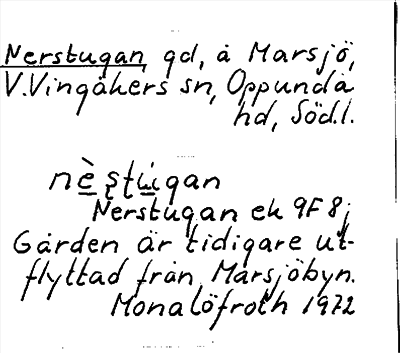 Nerstugan gd, å Marsjö,
V.Vingåkers sn, Oppunda
hd, Södl.
nè̱ʂtú̱gan
Nerstugan ek 9F8j
Gården är tidigare ut-
flyttad från Marsjöbyn.
Mona Löfroth 1972